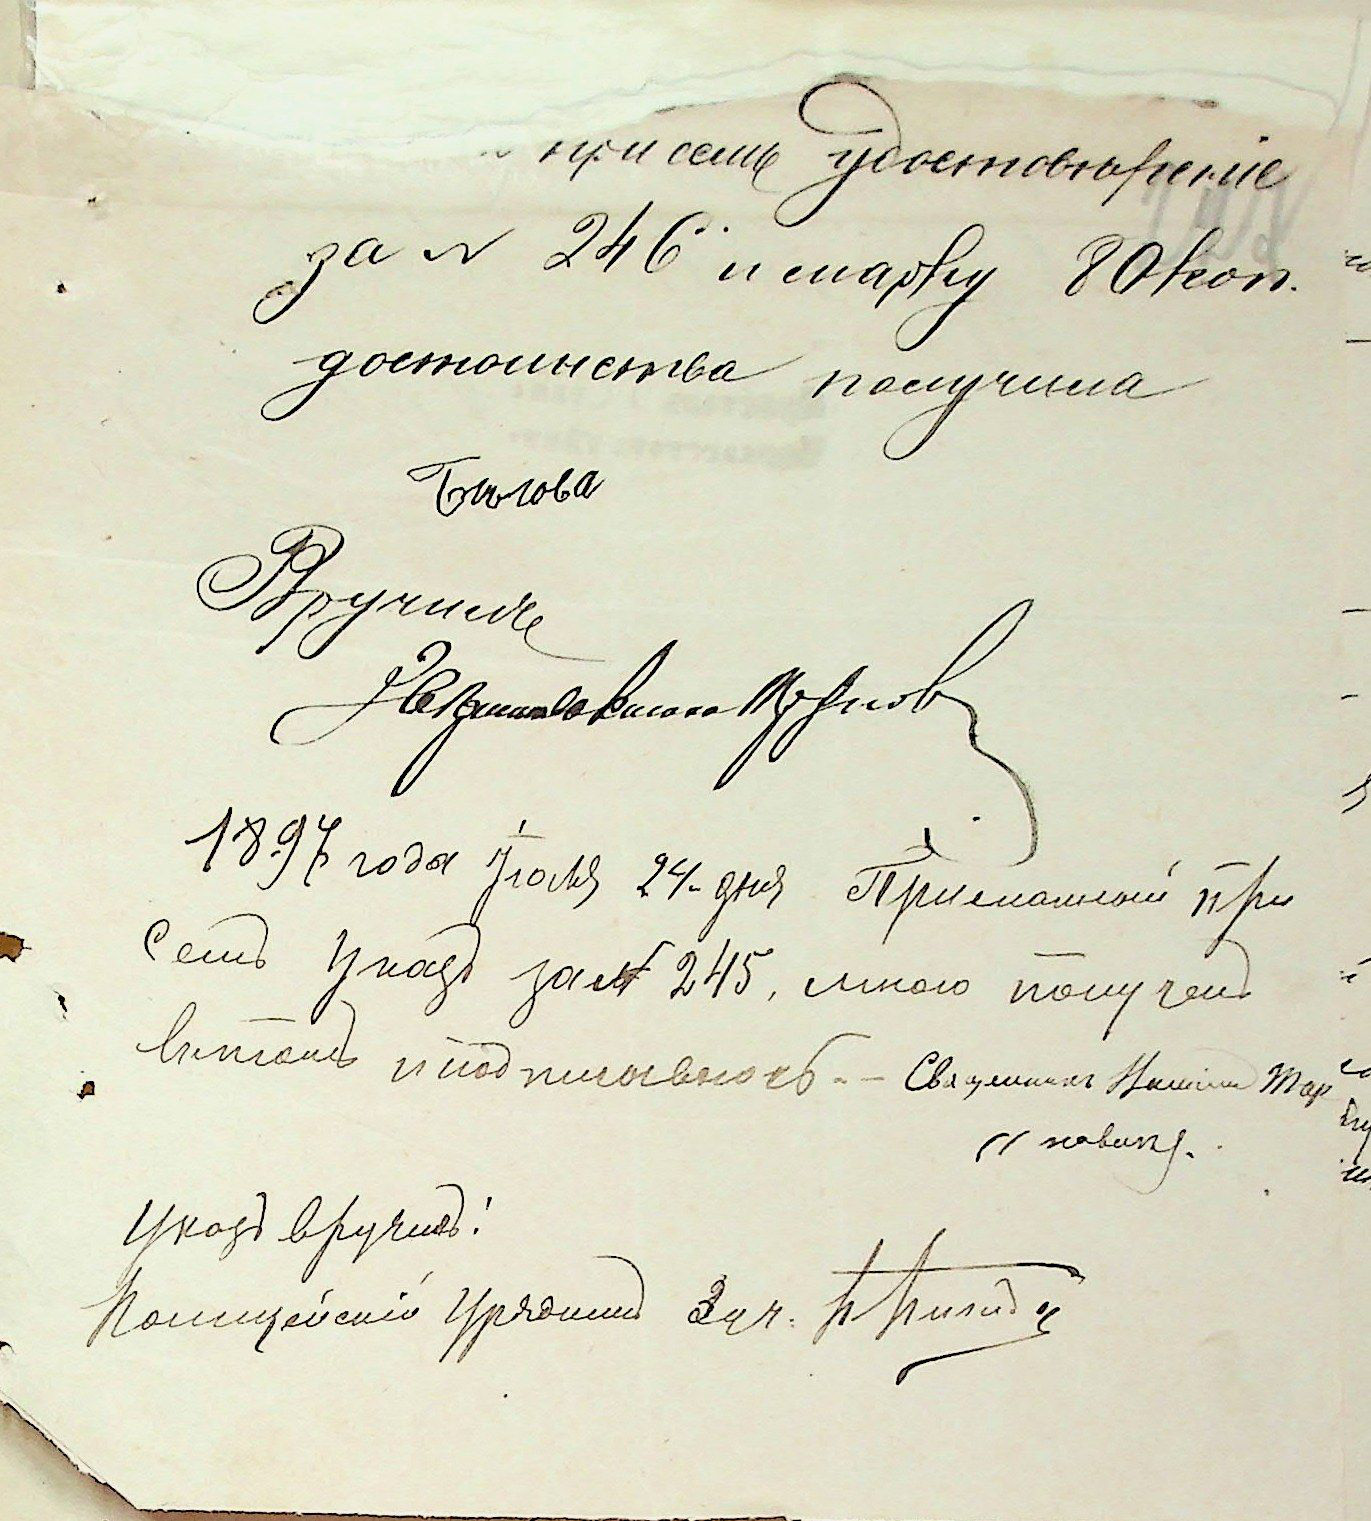 при семъ удостовѣреніе
за № 246 и марку 80 коп.
достоинства получила
Бѣлова
Вручилъ
1897 года Іюля 24 дня Присланный при
семъ Указъ за № 245, мною получен
въ томъ и подписываюсь. — Священникъ Тар
новичъ.
Указъ вручилъ:
Полицейскій Урядникъ 3 уч.